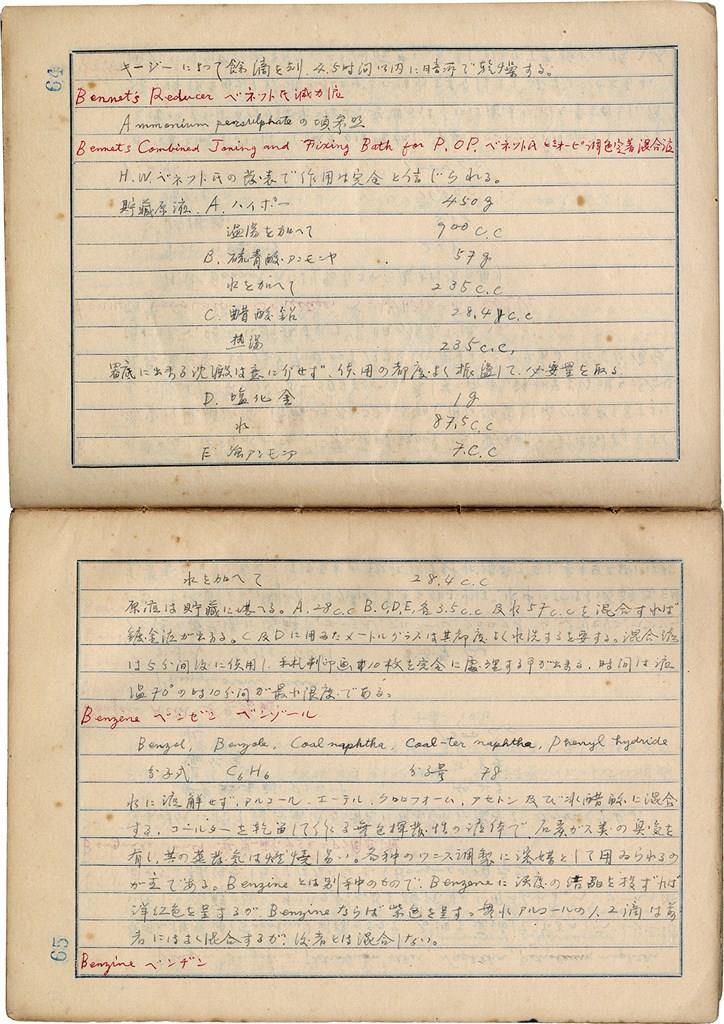 64
キージーによって餘滴を刮, 4,5時间以内に暗所で乾燥する。
Bennet's Reducer ベネット氏減力液
Ammonium persulphate の項参照
Bennet's Combined Toning and Fixing Bath for P.O.P. ベネット氏ピオーピー調色定着混合液
H.W.ベネット氏の發表で作用は完全と信じられる。
貯蔵原液. A. ハイポー 450g
温湯を加へて 900 c.c
B. 硫青酸アンモニヤ 57g
水を加へて 235 c.c
C. 醋酸鉛 28.4 c.c
热湯 235 c.c,
器底に出来る沈澱は意に介せず, 使用の都度よく振盪して, 必要量を取る.
D. 塩化金 1g
水 87.5 c.c
E 強アンモニア 7.c.c
水を加へて 28.4 c.c
原液は貯蔵に堪へる。A. 28c.c B.C,D,E, 各3.5c.c 及水57c.c を混合すれば
鍍金液が出来る。C及Dに用ゐたメートルグラスは其都度よく水洗するを要する。混合液
は5分间後に使用し, 手札判印画10枚を完全に處理する事が出来る, 時间は液
温70°の時10分间が最小限度である。
Benzene ベンゼン ベンゾール
Benzol, Benzole, Coal naphtha, Coal-ter naphtha, Phenyl hydride
分子式 C6H6 分子量 78
水に溶解せず, アルコール, エーテル, クロロフォーム, アセトン及び氷醋酸に混合
する, コールターを乾溜して作る無色揮發性の液体で, 石炭ガス様の臭気を
有し, 其の蒸発気は燃焼し易い。各种のワニス調製に溶媒として用ゐられるの
が主である。Benzine とは別种のもので, Benzene に沃度の結晶を投ずれば
洋紅色を呈するが, Benzine ならば紫色を呈す。無水アルコールの1, 2滴は前
者にはよく混合するが, 後者とは混合しない。
65
Benzine ベンヂン